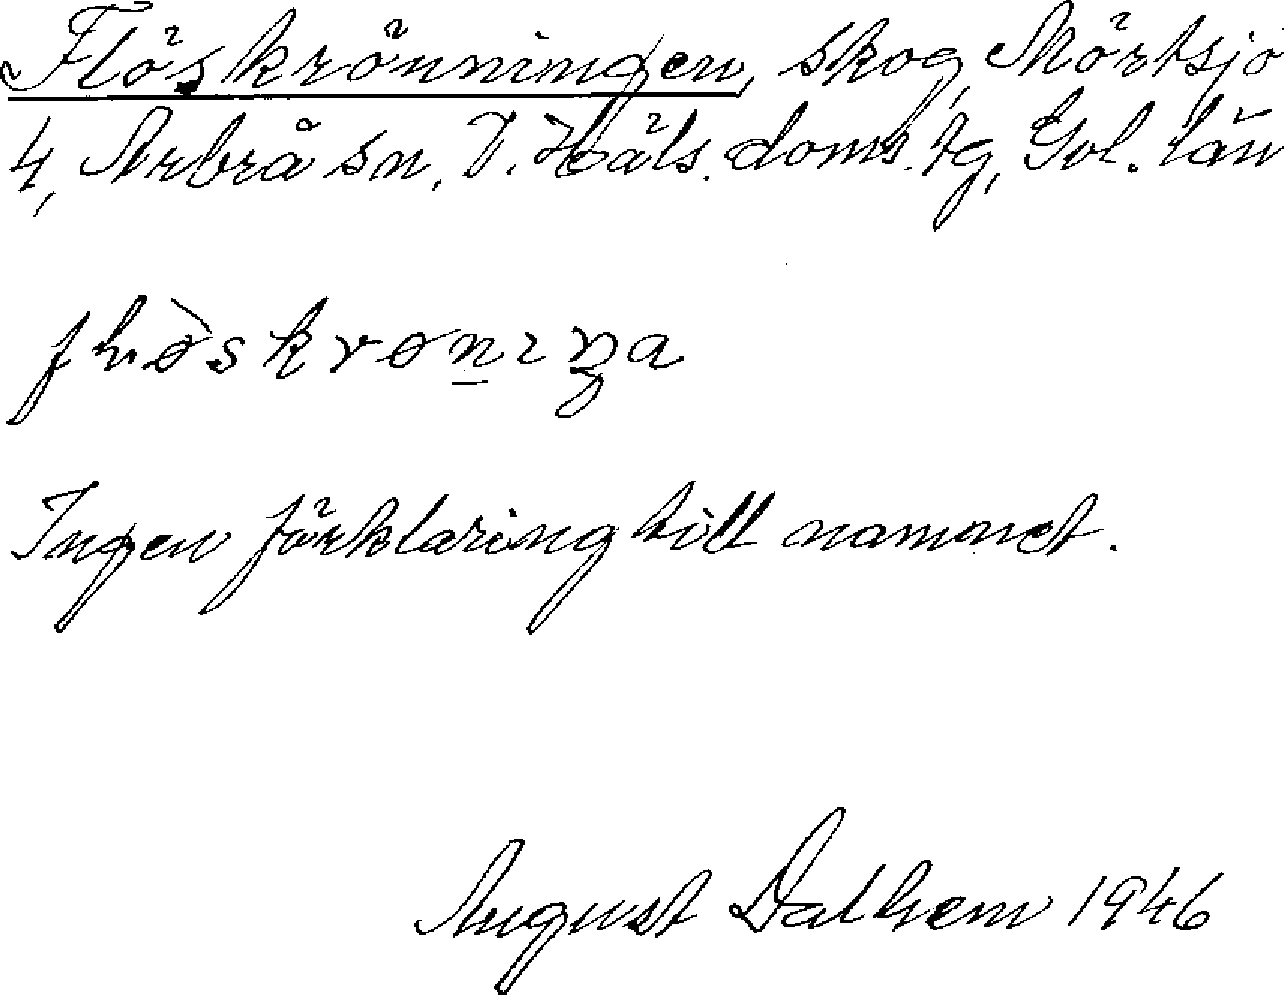 Flöskrönningen, skog, Mörtsjö
4, Arbrå sn, V. Häls. doms. tg, Gvl. län
Ingen förklaring till namnet.
August Dalhem 1946